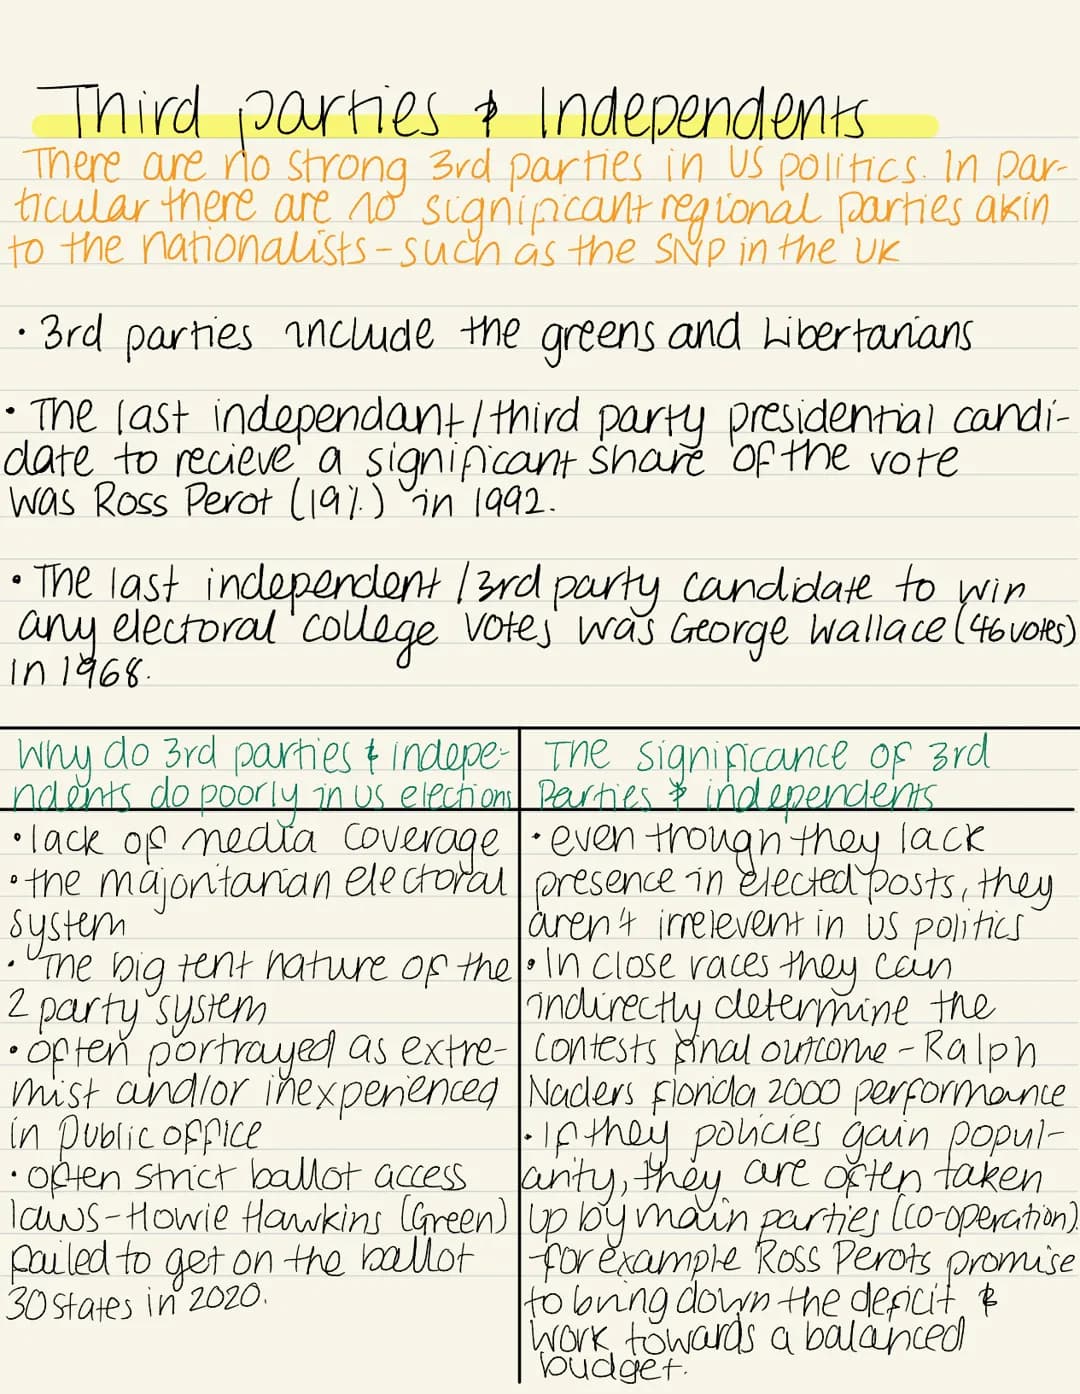 Third parties & Independents
There are no strong 3rd parties in US politics. In par-
ticular there are no significant regional parties akin
to the nationalists - such as the SNP in the UK
• 3rd parties include the greens and Libertarians
• The last independant / third party presidential candi-
date to recieve a significant share of the vote
was Ross Perot (19%) in 1992.
• The last independent / 3rd party candidate to win
any electoral college votes was George Wallace (46 votes)
in 1968.
Why do 3rd parties & indepe-
ndents do poorly in US elections
• lack of media coverage
• the majoritarian electoral
system
• The "big tent nature of the
2 party" system
• often portrayed as extre-
mist and/or inexperienced
in public office
• often strict ballot access
laws - Howie Hawkins (Green)
failed to get on the ballot
30 states in 2020.
The significance of 3rd
Parties & independents
• even trough they lack
presence in elected posts, they
aren't irrelevent in US politics
• In close races they can
indirectly determine the
contests final outcome - Ralph
Naders florida 2000 performance
• If they policies gain popul-
arity, they are often taken
up by main parties (co-operation).
- for example Ross Perots promise
to bring down the deficit &
work towards a balanced
budget.